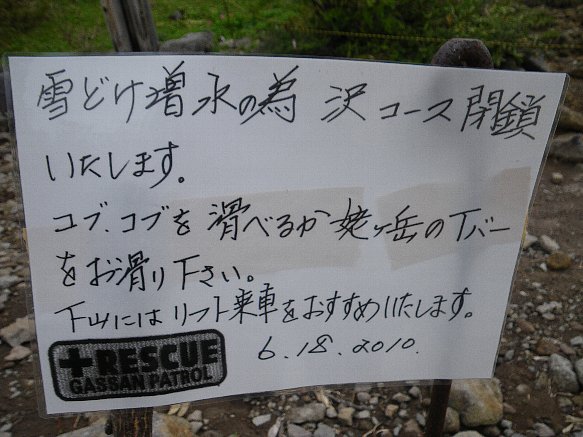 雪どけ増水の為 沢コース閉鎖
いたします。
コブ、コブを滑べるか姥ヶ岳のTバー
をお滑り下さい。
下山にはリフト乗車をおすすめいたします。
RESCUE
GASSAN PATROL
6.18.2010.